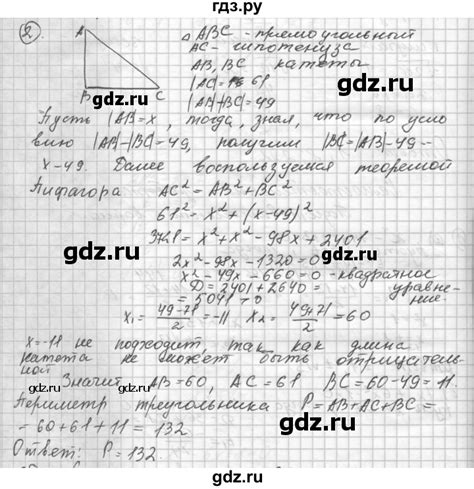 gdz.ru
②
A
B
C
△ ABC - прямоугольный
AC - гипотенуза
AB, BC катеты
|AC| = 61
|AB|-|BC|=49
gdz.ru
gdz.ru
Пусть |AB|=x, тогда, зная, что по усло
вию |AB|-|BC|=49, получим |BC|=|AB|-49=
x-49. Далее воспользуемся теоремой
Пифагора AC²=AB²+BC²
gdz.ru
61²=x²+(x-49)²
3721=x²+x²-98x+2401
gdz.ru
2x²-98x-1320=0
x²-49x-660=0-квадратное
уравне-
ние.
D=2401+2640=
=5041>0
x₁=(49-71)/2=-11 x₂=(49+71)/2=60
gdz.ru
x=-11 не подходит, так как длина
катета не может быть отрицатель-
ной
gdz.ru
Значит, AB=60, AC=61 BC=60-49=11.
Периметр треугольника P=AB+AC+BC=
=60+61+11=132
gdz.ru
Ответ: P=132.
gdz.ru